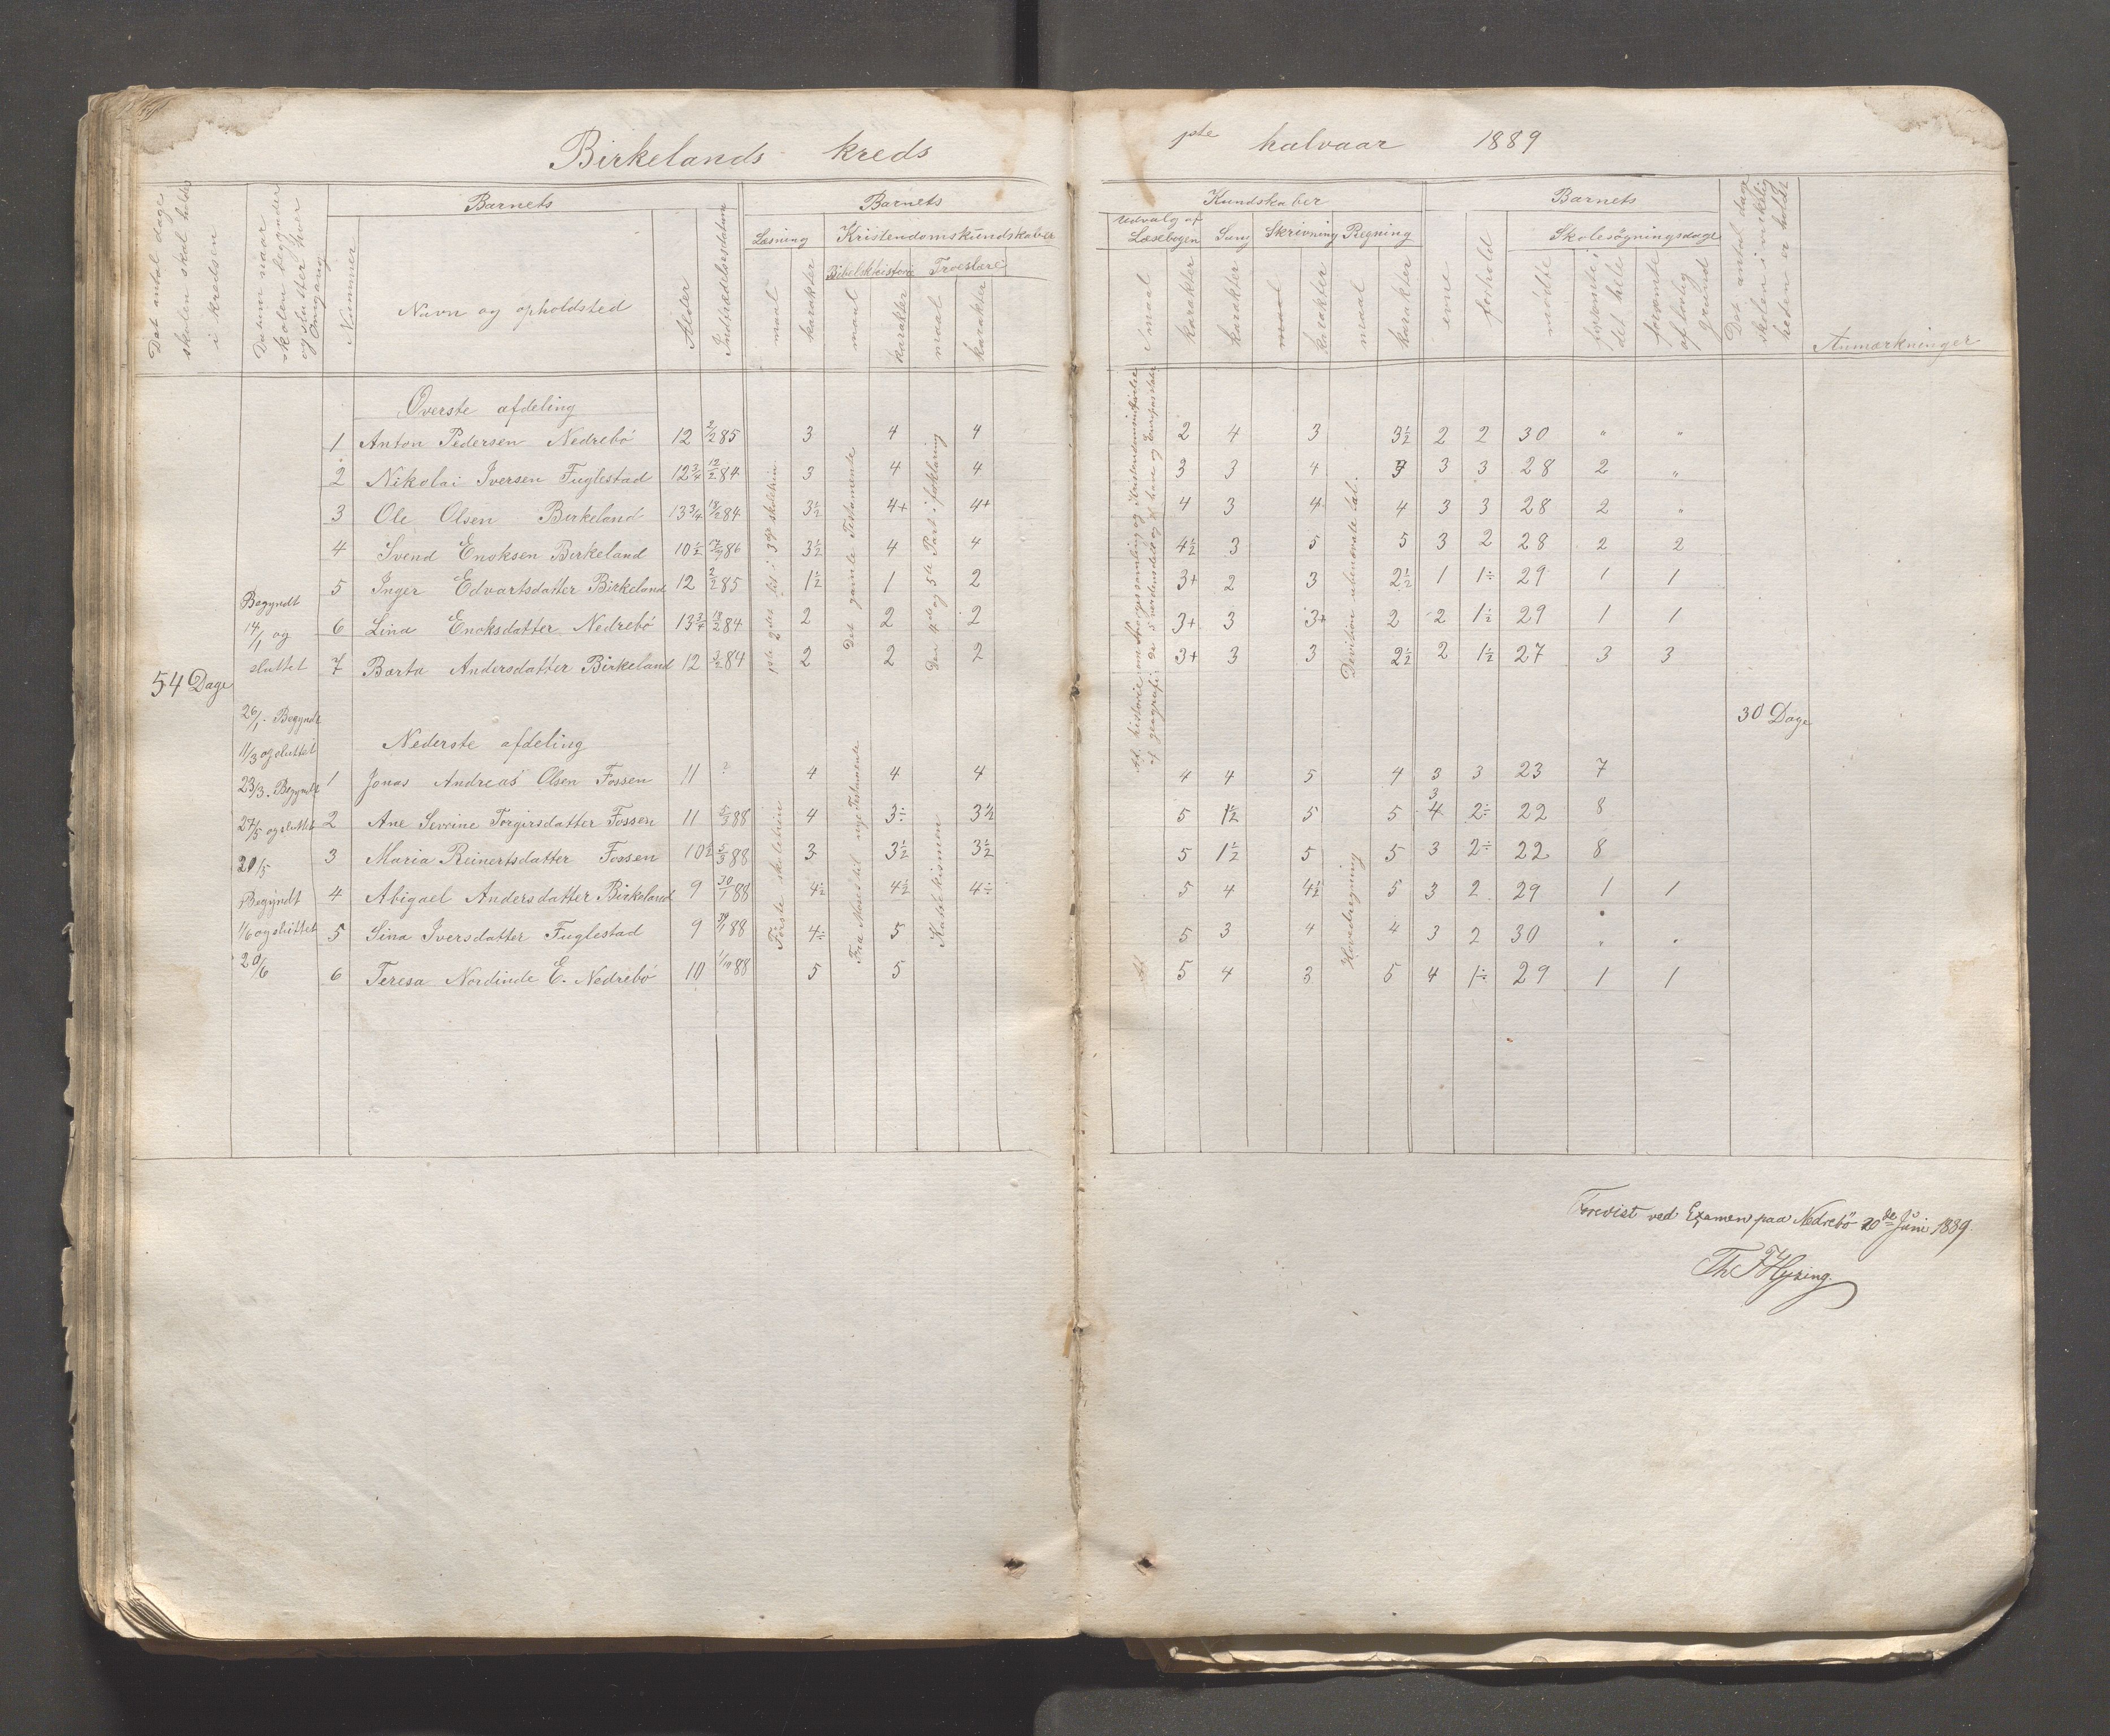 Birkelands kreds 1ste halvaar 1889
Det antal dage skolen skal holdes i kredsen
Datum naar skolen begynder og slutter hver Omgang
Barnets
Nummer
Navn og opholdsted
Alder
Indtrædelsesdatum
Barnets
Læsning
maal
karakter
Kristendomskundskaber
Bibelskhistori
maal
karakter
Troeslære
maal
karakter
Kundskaber
Udvalg af Læsebogen
maal
karakter
Sang
karakter
Skrivning
maal
karakter
Regning
maal
karakter
Barnets
evne
forhold
Skolesøgningsdage
mødte
forsømte i det hele
forsømte af lovlig grund
Det antal dage skolen i virkelig heden er holdt
Anmærkninger
Øverste afdeling
1 Anton Pedersen Nedrebö 12 2/2 85 3 4 4 2 4 3 3½ 2 2 30 " "
2 Nikolai Iversen Fuglestad 12¾ 12/2 84 3 4 4 3 3 4 3 3 28 2 "
3 Ole Olsen Birkeland 13¾ 18/2 84 3½ 4+ 4+ 4 3 4 4 3 3 28 2 "
4 Svend Enoksen Birkeland 10½ 86 3½ 4 4 4½ 3 5 5 3 2 28 2 2
5 Inger Edvartsdatter Birkeland 12 2/2 85 1½ 1 2 3+ 2 3 2½ 1 1÷ 29 1 1
6 Lina Enoksdatter Nedrebö 13¾ 18/2 84 2 2 2 3+ 3 3+ 2 2 1½ 29 1 1
7 Barta Andersdatter Birkeland 12 3/2 84 2 2 2 3+ 3 3 2½ 2 1½ 27 3 3
Det gamle Testamente
Den 4de og 5te Part i forklaring
Devition ubenævnte tal.
54 Dage
Begyndt 14/1 og sluttet
26/1. Begyndt
11/3 og sluttet
23/3. Begyndt
27/5 og sluttet
Begyndt
1/6 og sluttet
20/6
30 Dage
Nederste afdeling
1 Jonas Andreas Olsen Fossen 11 ? 4 4 4 4 4 5 4 3 3 23 7
2 Ane Sevrine Torgirsdatter Fossen 11 5/3 88 4 3÷ 3½ 5 1½ 5 5 3 4 2÷ 22 8
3 Maria Reinertsdatter Fossen 10½ 5/3 88 3 3½ 3½ 5 1½ 5 5 3 2÷ 22 8
4 Abigael Andersdatter Birkeland 9 30/1 88 4½ 4½ 4÷ 5 4 4½ 5 3 2 29 1 1
5 Sina Iversdatter Fuglestad 9 88 4÷ 5 5 3 4 4 3 2 30 " "
6 Teresa Nordinde E. Nedrebö 10 1/10 88 5 5 5 4 3 5 4 1÷ 29 1 1
Første skoletrin
Fra Moses til nye Testamente
Katekismen
Hovedregning
Forevist ved Examen paa Nedrebö 20de Juni 1889.
Th F Hysing.